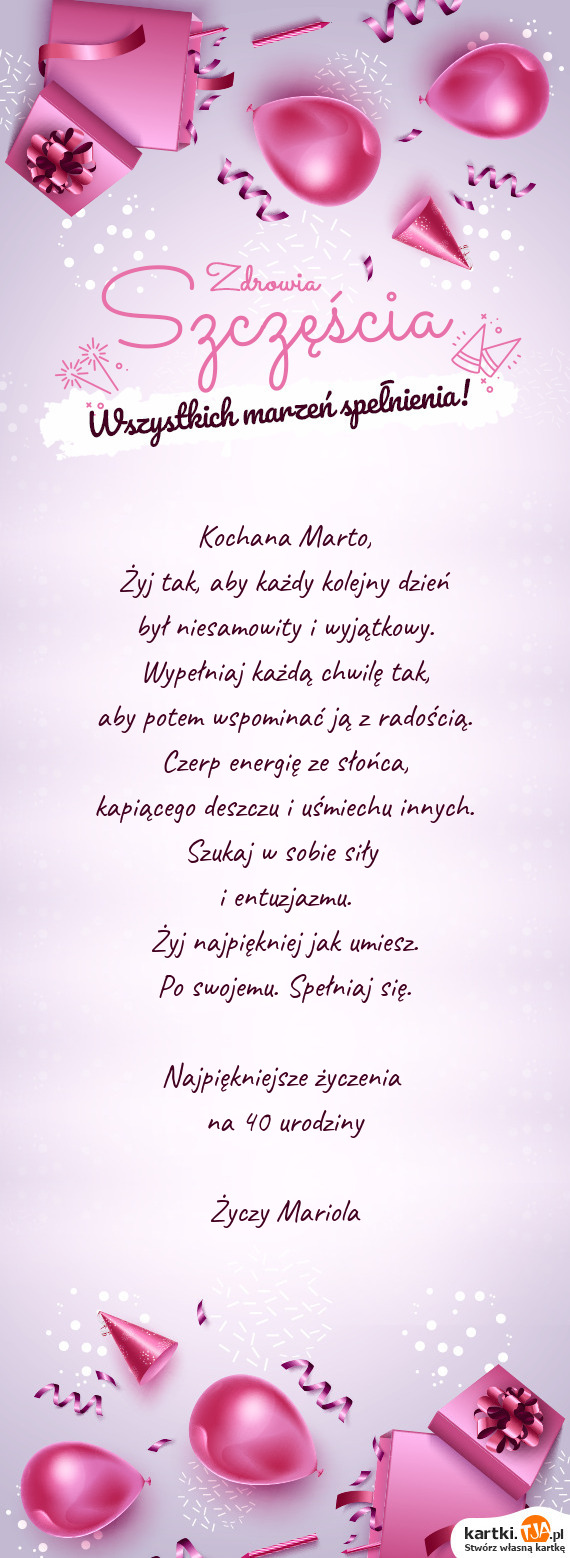 Zdrowia
Szczęścia
Wszystkich marzeń spełnienia!
Kochana Marto,
Żyj tak, aby każdy kolejny dzień
był niesamowity i wyjątkowy.
Wypełniaj każdą chwilę tak,
aby potem wspominać ją z radością.
Czerp energię ze słońca,
kapiącego deszczu i uśmiechu innych.
Szukaj w sobie siły
i entuzjazmu.
Żyj najpiękniej jak umiesz.
Po swojemu. Spełniaj się.
Najpiękniejsze życzenia
na 40 urodziny
Życzy Mariola
kartki.TJA.pl
Stwórz własną kartkę